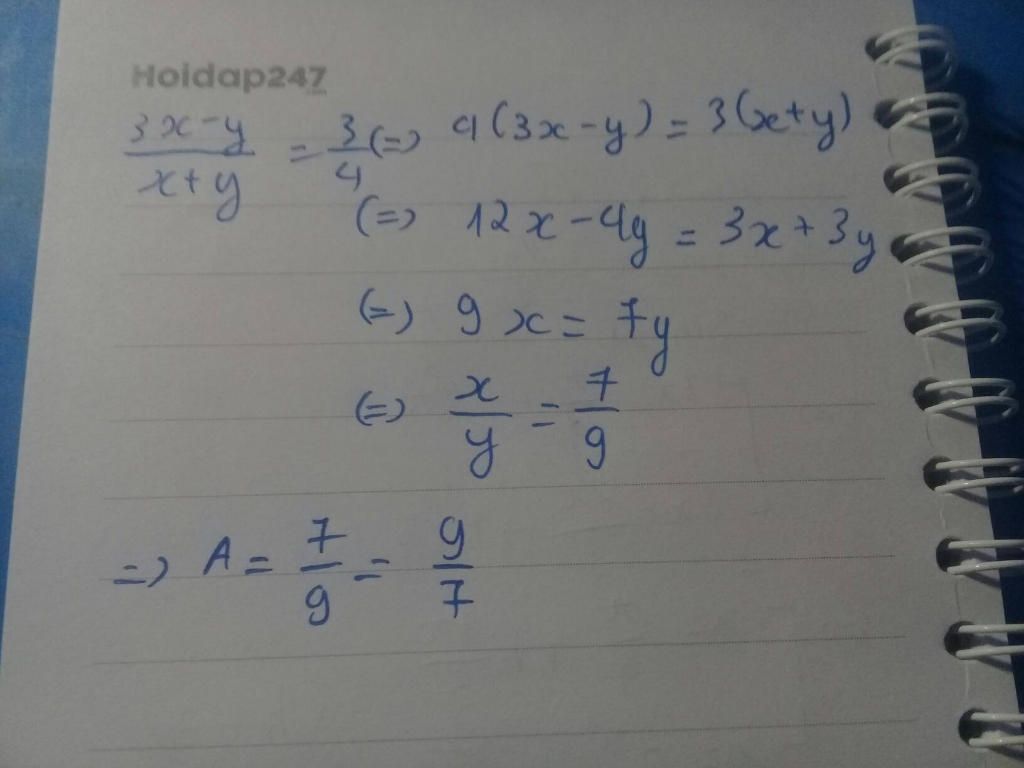 Hoidap247
(3x-y)/(x+y) = 3/4 (=) 4(3x-y) = 3(x+y)
(=) 12x-4y = 3x+3y
(=) 9x = 7y
(=) x/y = 7/9
=) A = 7/9 = 9/7